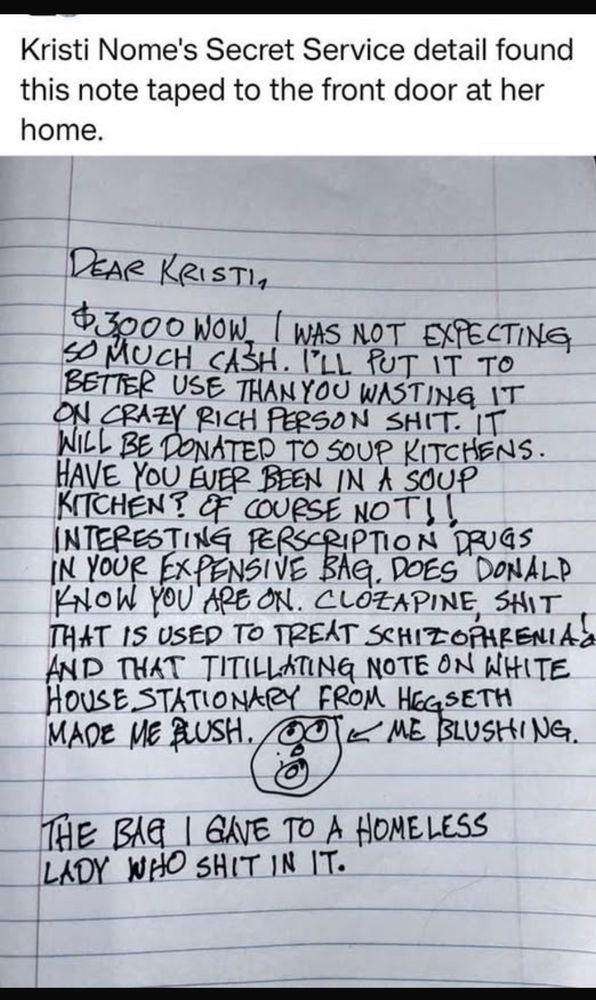 Kristi Nome's Secret Service detail found
this note taped to the front door at her
home.
DEAR KRISTI,
$3000 WOW, I WAS NOT EXPECTING
SO MUCH CASH. I'LL PUT IT TO
BETTER USE THAN YOU WASTING IT
ON CRAZY RICH PERSON SHIT. IT
WILL BE DONATED TO SOUP KITCHENS.
HAVE YOU EVER BEEN IN A SOUP
KITCHEN? OF COURSE NOT!!
INTERESTING PERSCRIPTION DRUGS
IN YOUR EXPENSIVE BAG. DOES DONALD
KNOW YOU ARE ON. CLOZAPINE, SHIT
THAT IS USED TO TREAT SCHIZOPHRENIA?
AND THAT TITILLATING NOTE ON WHITE
HOUSE STATIONARY FROM HEGSETH
MADE ME BLUSH. ME BLUSHING.
THE BAG I GAVE TO A HOMELESS
LADY WHO SHIT IN IT.